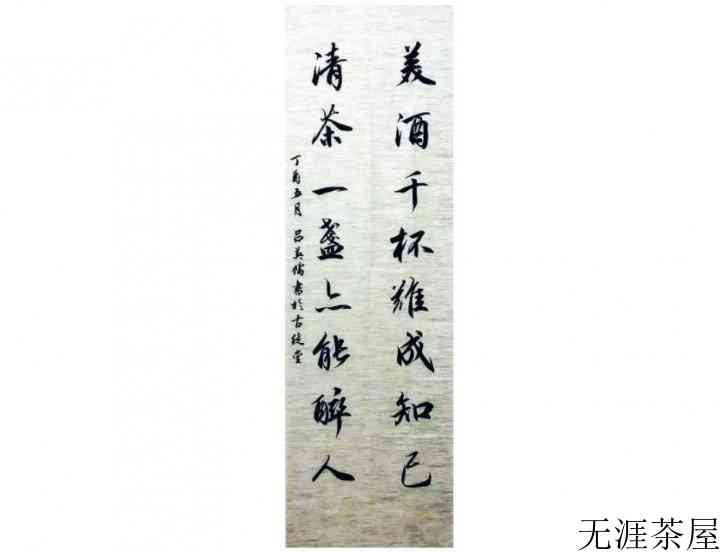 美酒千杯难成知己
清茶一盏亦能醉人
丁酉五月 吕英儒书於古绫堂
无涯茶屋